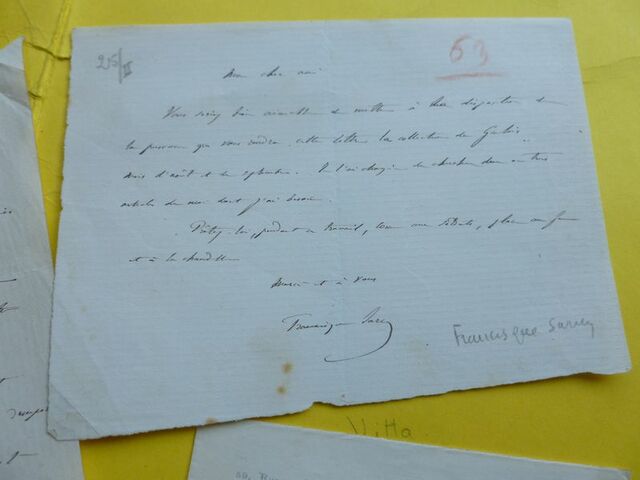 25/II
63
Mon cher ami
Vous seriez bien aimable de mettre à la disposition de
la personne que vous rendra cette lettre la collection du Gaulois
mois d'août et de septembre. Je l'ai chargée de chercher deux ou trois
articles de moi dont j'ai besoin.
Prêtez-lui, pendant ce travail, une table, place au feu
et à la chandelle
Merci et à vous
Francisque Sarcey
Francisque Sarcey
Vitta